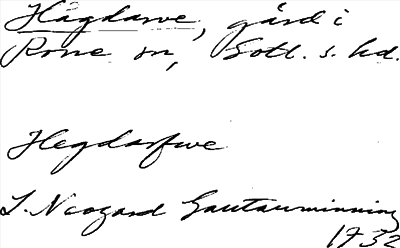 Hägdarve, gård i
Rone sn, Gotl. s. hd.
Hegdarfwe
L. Neogard Gautauminning
1732